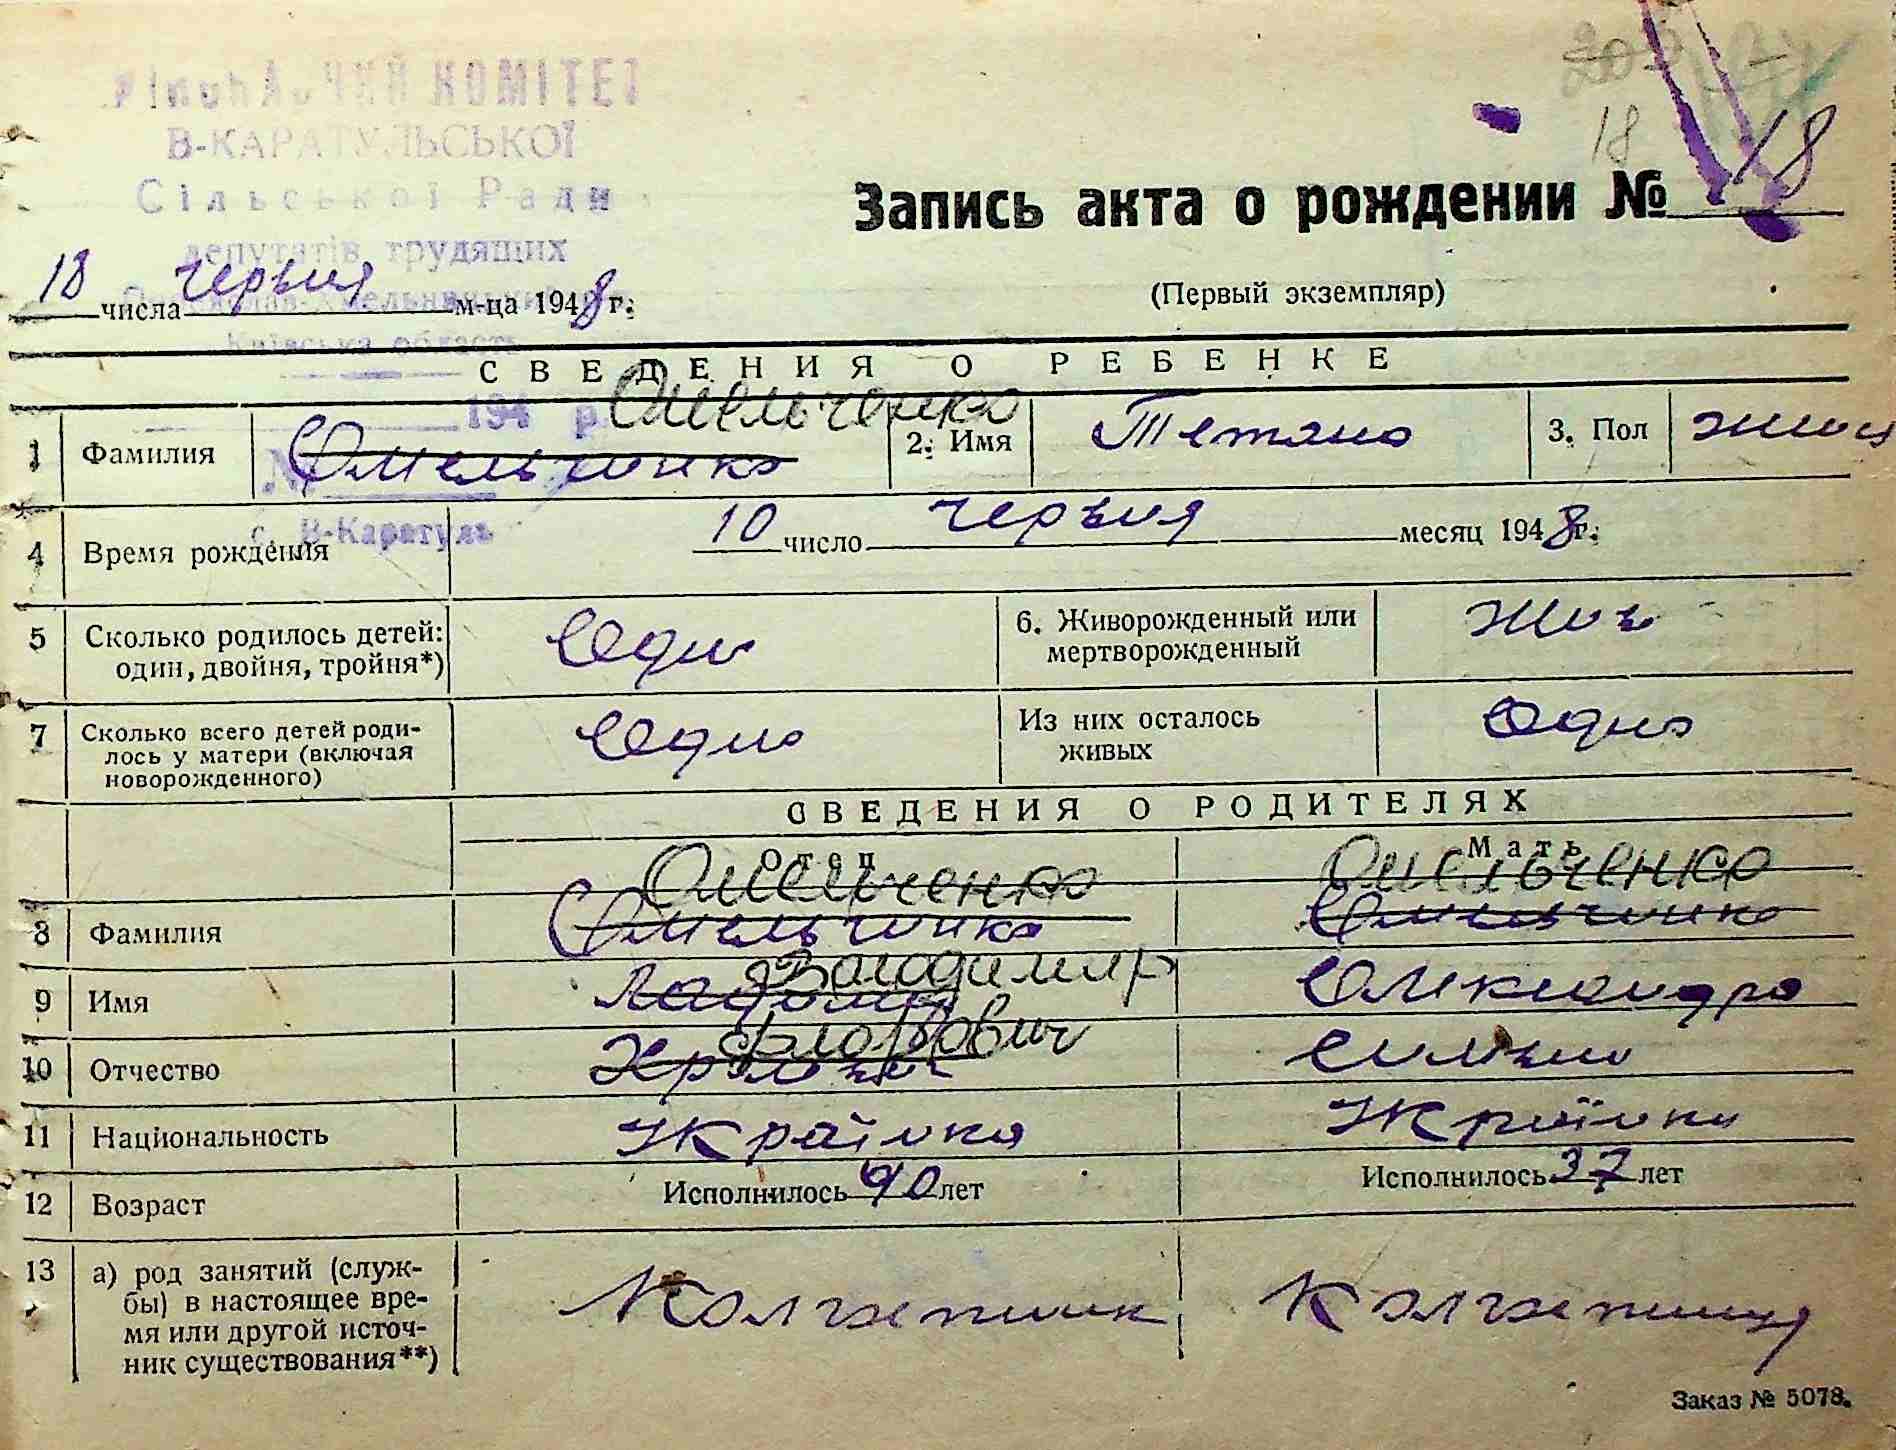 КОМІТЕТ
В-КАРАТУЛЬСЬКОЇ
Сільської Ради
депутатів трудящих
Київська область
194 р.
№
с. В-Каратуль
18
18
Запись акта о рождении №
18 числа червня м-ца 1948 г.
(Первый экземпляр)
СВЕДЕНИЯ О РЕБЕНКЕ
Омельченко
1 Фамилия Омельчинко 2. Имя Тетяна 3. Пол жіноч
4 Время рождения 10 число червня месяц 1948 г.
5 Сколько родилось детей: один, двойня, тройня*) Один 6. Живорожденный или мертворожденный
7 Сколько всего детей родилось у матери (включая новорожденного) Одно Из них осталось живых Одно
СВЕДЕНИЯ О РОДИТЕЛЯХ
Отец Мать
Омельченко Омельченко
8 Фамилия Омельчинко Омельчинко
Володимир
9 Имя Олександра
10 Отчество
11 Национальность Українка Українка
12 Возраст Исполнилось 40 лет Исполнилось 37 лет
13 а) род занятий (службы) в настоящее время или другой источник существования**) Колгоспник Колгоспниця
Заказ № 5078.